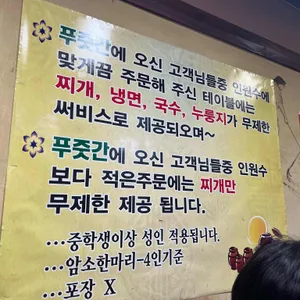 푸줏간에 오신 고객님들중 인원수에
맞게끔 주문해 주신 테이블에는
찌개, 냉면, 국수, 누룽지가 무제한
써비스로 제공되오며~
푸줏간에 오신 고객님들중 인원수
보다 적은주문에는 찌개만
무제한 제공 됩니다.
...중학생이상 성인 적용됩니다.
...암소한마리-4인기준
...포장 X